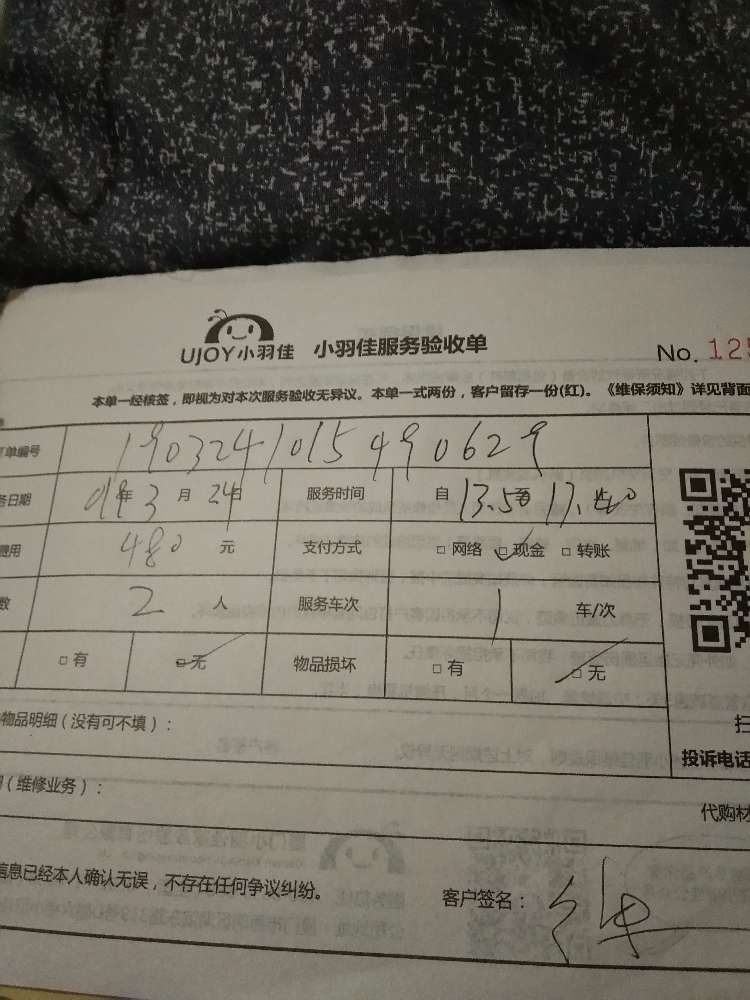 UJOY小羽佳 小羽佳服务验收单
No. 125
本单一经核签，即视为对本次服务验收无异议。本单一式两份，客户留存一份(红)。《维保须知》详见背面
单编号 1903241015490629
务日期 019年3月24日 服务时间 自13.5至17.40
费用 480元 支付方式 □网络 ☑现金 □转账
数 2人 服务车次 1 车/次
□有 ☑无 物品损坏 □有 ☑无
物品明细（没有可不填）：
扫
投诉电话
（维修业务）：
代购材
信息已经本人确认无误，不存在任何争议纠纷。 客户签名：